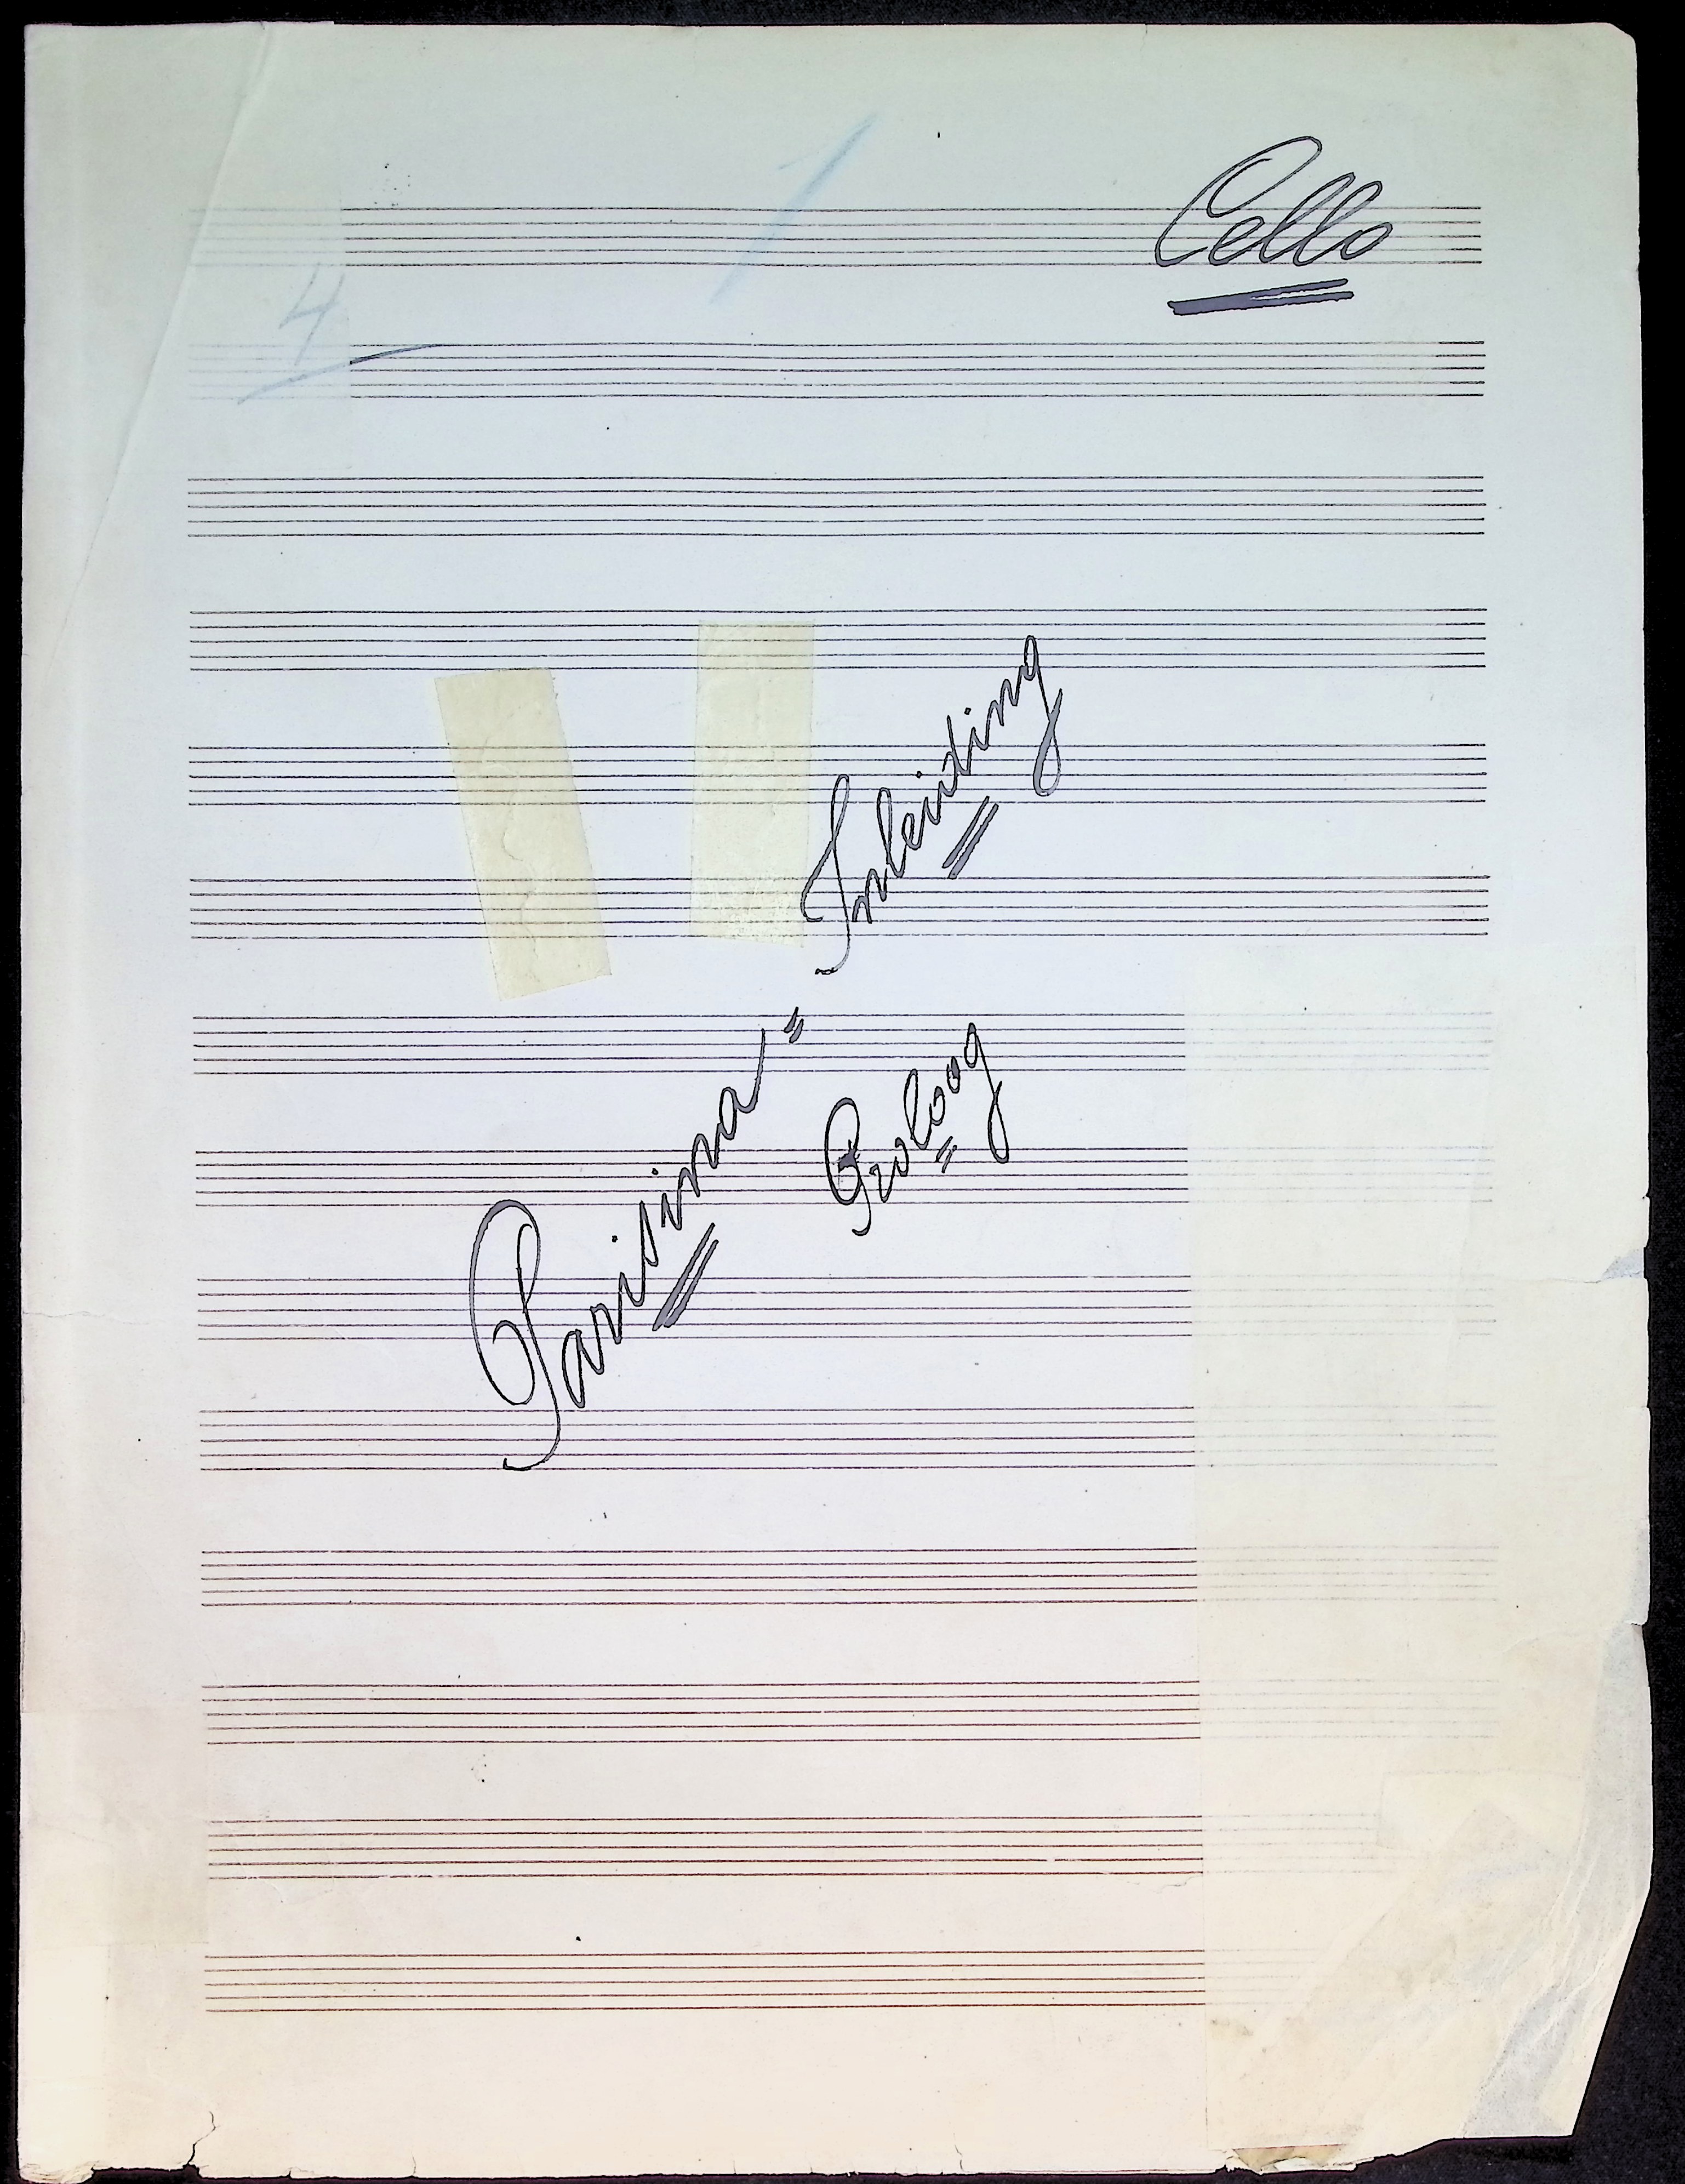 1
Cello
4
Parisina = Inleiding
Proloog